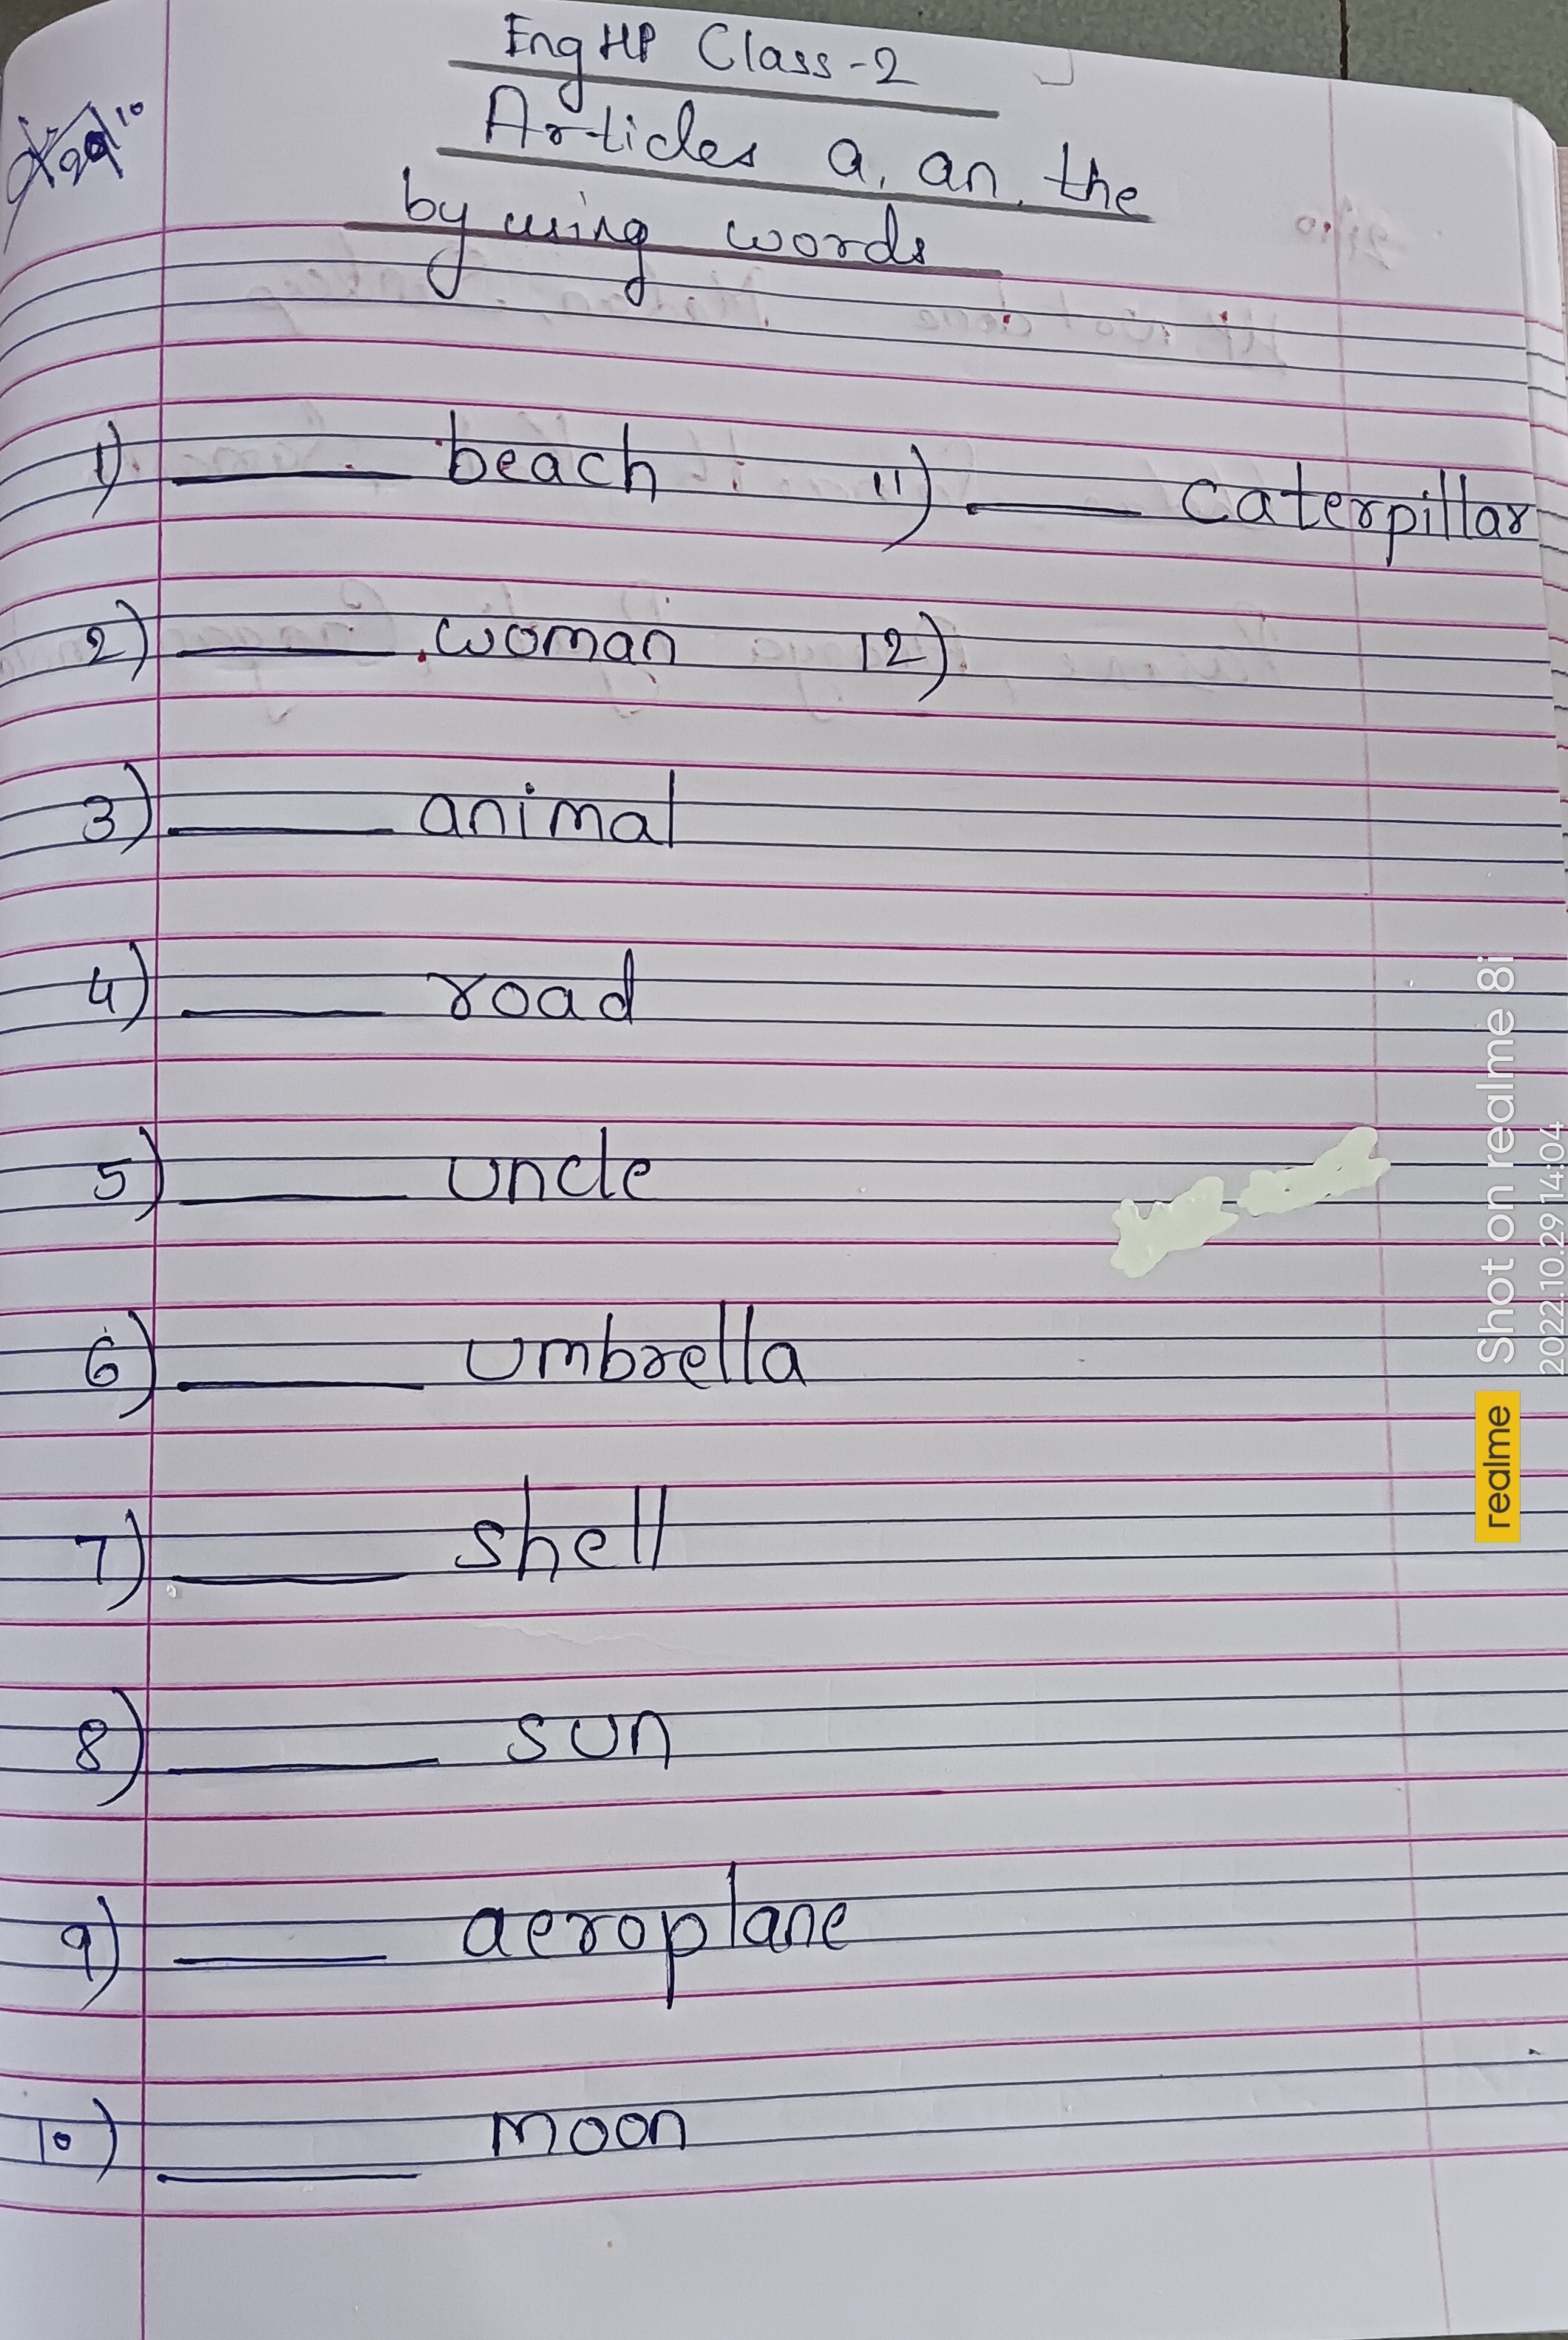 Eng HP Class-2
Articles a, an, the
by using words
1) ______ beach 11) ______ caterpillar
2) ______ woman 12)
3) ______ animal
4) ______ road
5) ______ uncle
6) ______ umbrella
7) ______ shell
8) ______ sun
9) ______ aeroplane
10) ______ moon
realme Shot on realme 8i
2022.10.29 14:04